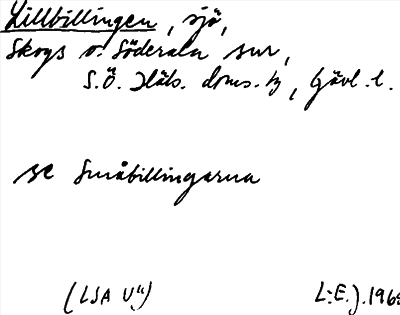 Lillbillingen, sjö,
Skogs o. Söderala snr,
S.Ö. Häls. doms. tg, Gävl. l.
se Småbillingarna
(LSA U")
L-E.J. 196